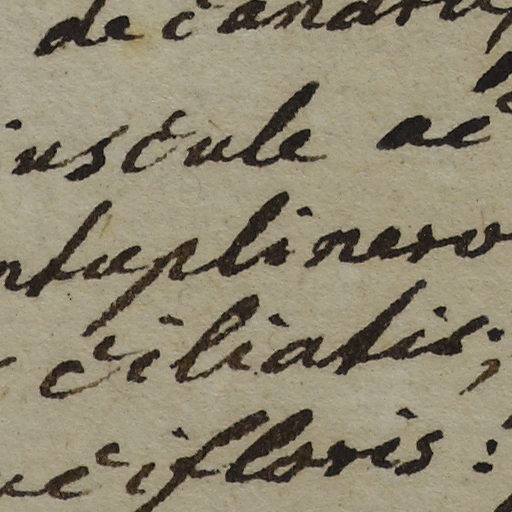 decandru
iuscule ac
ntuplinerv
ciliatis;
ucifloris: